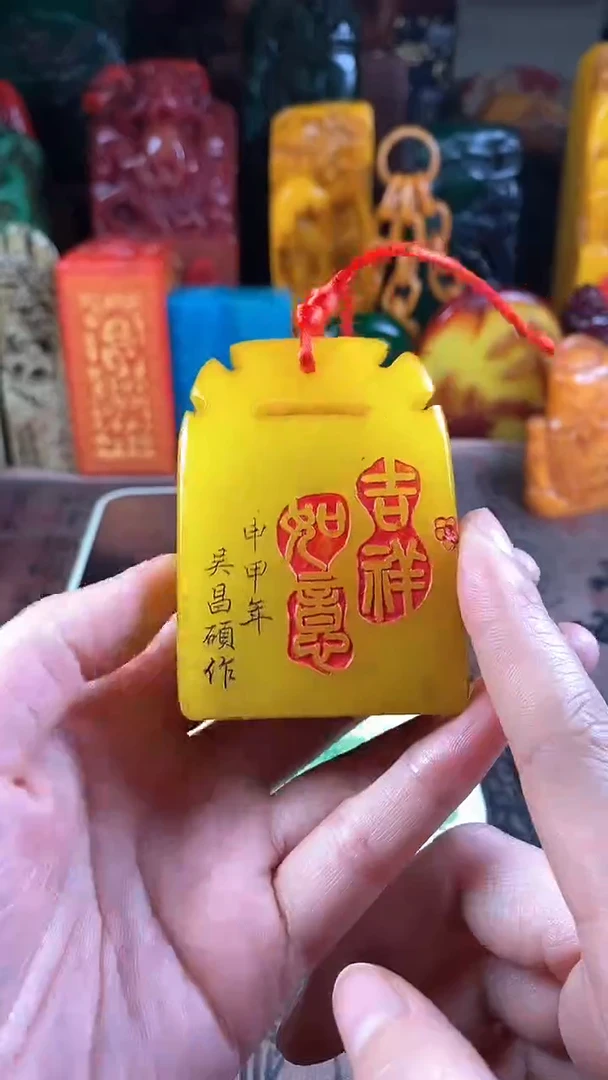 吉祥
如意
申甲年
吴昌硕作